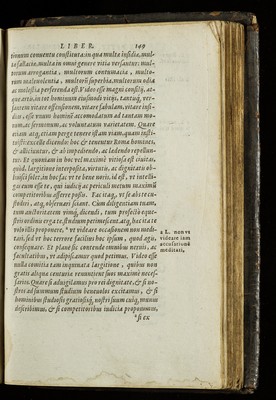 LIBER. 149
tionum conuentu constituta: in qua multæ insidiæ, mul-
ta fallaciæ, multa in omni genere vitia versantur: mul-
torum arrogantia, multorum contumacia, multo-
rum maleuolentia, multorũ superbia, multorum odia
ac molestia perferenda est. Video esse magni consilij, at-
que artis, in tot hominum eiusmodi vitijs, tantisq́; ver-
santem vitare offensionem, vitare fabulam, vitare insi-
dias, esse vnum hominẽ accommodatum ad tantam mo-
rum, ac sermonum, ac voluntatum varietatem. Quare
etiam atq; etiam perge tenere istam viam, quam insti-
tuisti: excelle dicendo: hoc & tenentur Romæ homines,
& alliciuntur, & ab impediendo, ac lædendo repellun-
tur. Et quoniam in hoc vel maximè vitiosa est ciuitas,
quòd, largitione interposita, virtutis, ac dignitatis ob-
liuisci solet: in hoc fac vt te bene noris. id est, vt intelli-
gas eum esse te, qui iudicij ac periculi metum maximũ
competitoribus afferre possis. Fac itaq;, vt se abs te cu-
stodiri, atq; obseruari sciant. Cùm diligentiam tuam,
cùm auctoritatem vimq́; dicendi, tum profectò eque-
stris ordinis erga te studium pertimescent. atq; hæc ita te
volo illis proponere, ª vt videare occasionem non medi-
tari, sed vt hoc terrore facilius hoc ipsum, quod agis,
consequare. Et planè sic contende omnibus neruis, ac
facultatibus, vt adipiscamur quod petimus. Video esse
nulla comitia tam inquinata largitione, quibus non
gratis aliquæ centuriæ renuncient suos maximè neces-
sarios. Quare si aduigilamus pro rei dignitate, & si no-
stros ad summum studium beneuolos excitamus, & si
hominibus studiosis gratiosisq́;, nostri suum cuiq; munus
describimus, & si competitoribus iudicia proponimus,
ª si ex
a L. non vt
videare iam
accusationẽ
meditari,